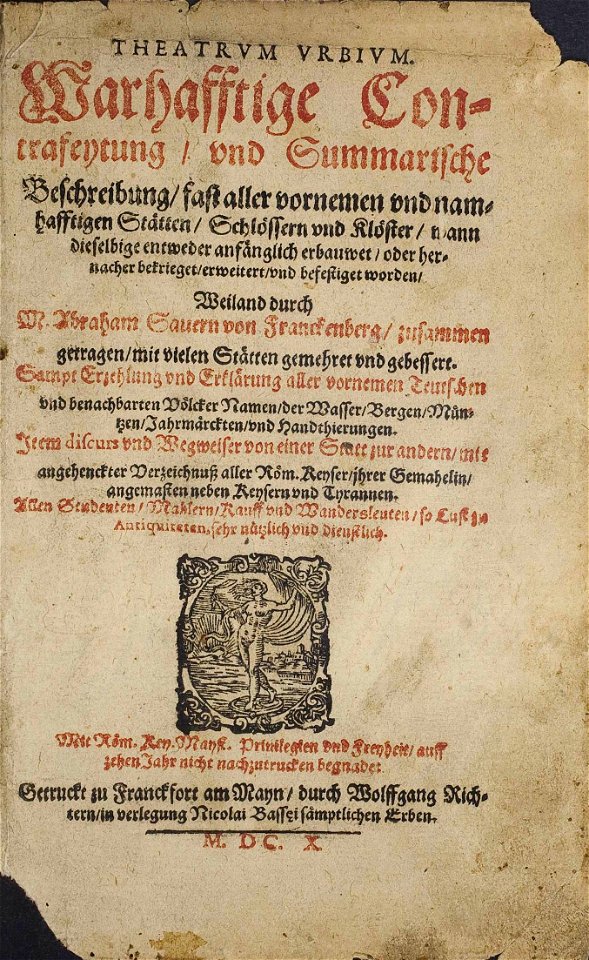 THEATRVM VRBIVM.
Warhafftige Con-
trafeytung / vnd Summarische
Beschreibung / fast aller vornemen vnd nam-
hafftigen Stätten / Schlössern vnd Klöster / wann
dieselbige entweder anfänglich erbauwet / oder her-
nacher bekrieget / erweitert / vnd befestiget worden /
Weiland durch
M. Abraham Sauern von Franckenberg / zusammen
getragen / mit vielen Stätten gemehret vnd gebessert.
Sampt Erzehlung vnd Erklärung aller vornemen Teutschen
vnd benachbarten Völcker Namen / der Wasser / Bergen / Mün-
tzen / Jahrmärckten / vnd Handthierungen.
Item discurs vnd Wegweiser von einer Statt zur andern / mit
angehenckter Verzeichnuß aller Röm. Keyser / jhrer Gemahelin /
angemasten neben Keysern vnd Tyrannen.
Allen Studenten / Mahlern / Kauff vnd Wandersleuten / so Lust zu
Antiquiteten, sehr nützlich vnd dienstlich.
Mit Röm. Key. Mayst. Privilegien vnd Freyheit / auff
zehen Jahr nicht nachzutrucken begnadet
Getruckt zu Franckfort am Mayn / durch Wolffgang Rich-
tern / in verlegung Nicolai Bassei sämptlichen Erben.
M. DC. X